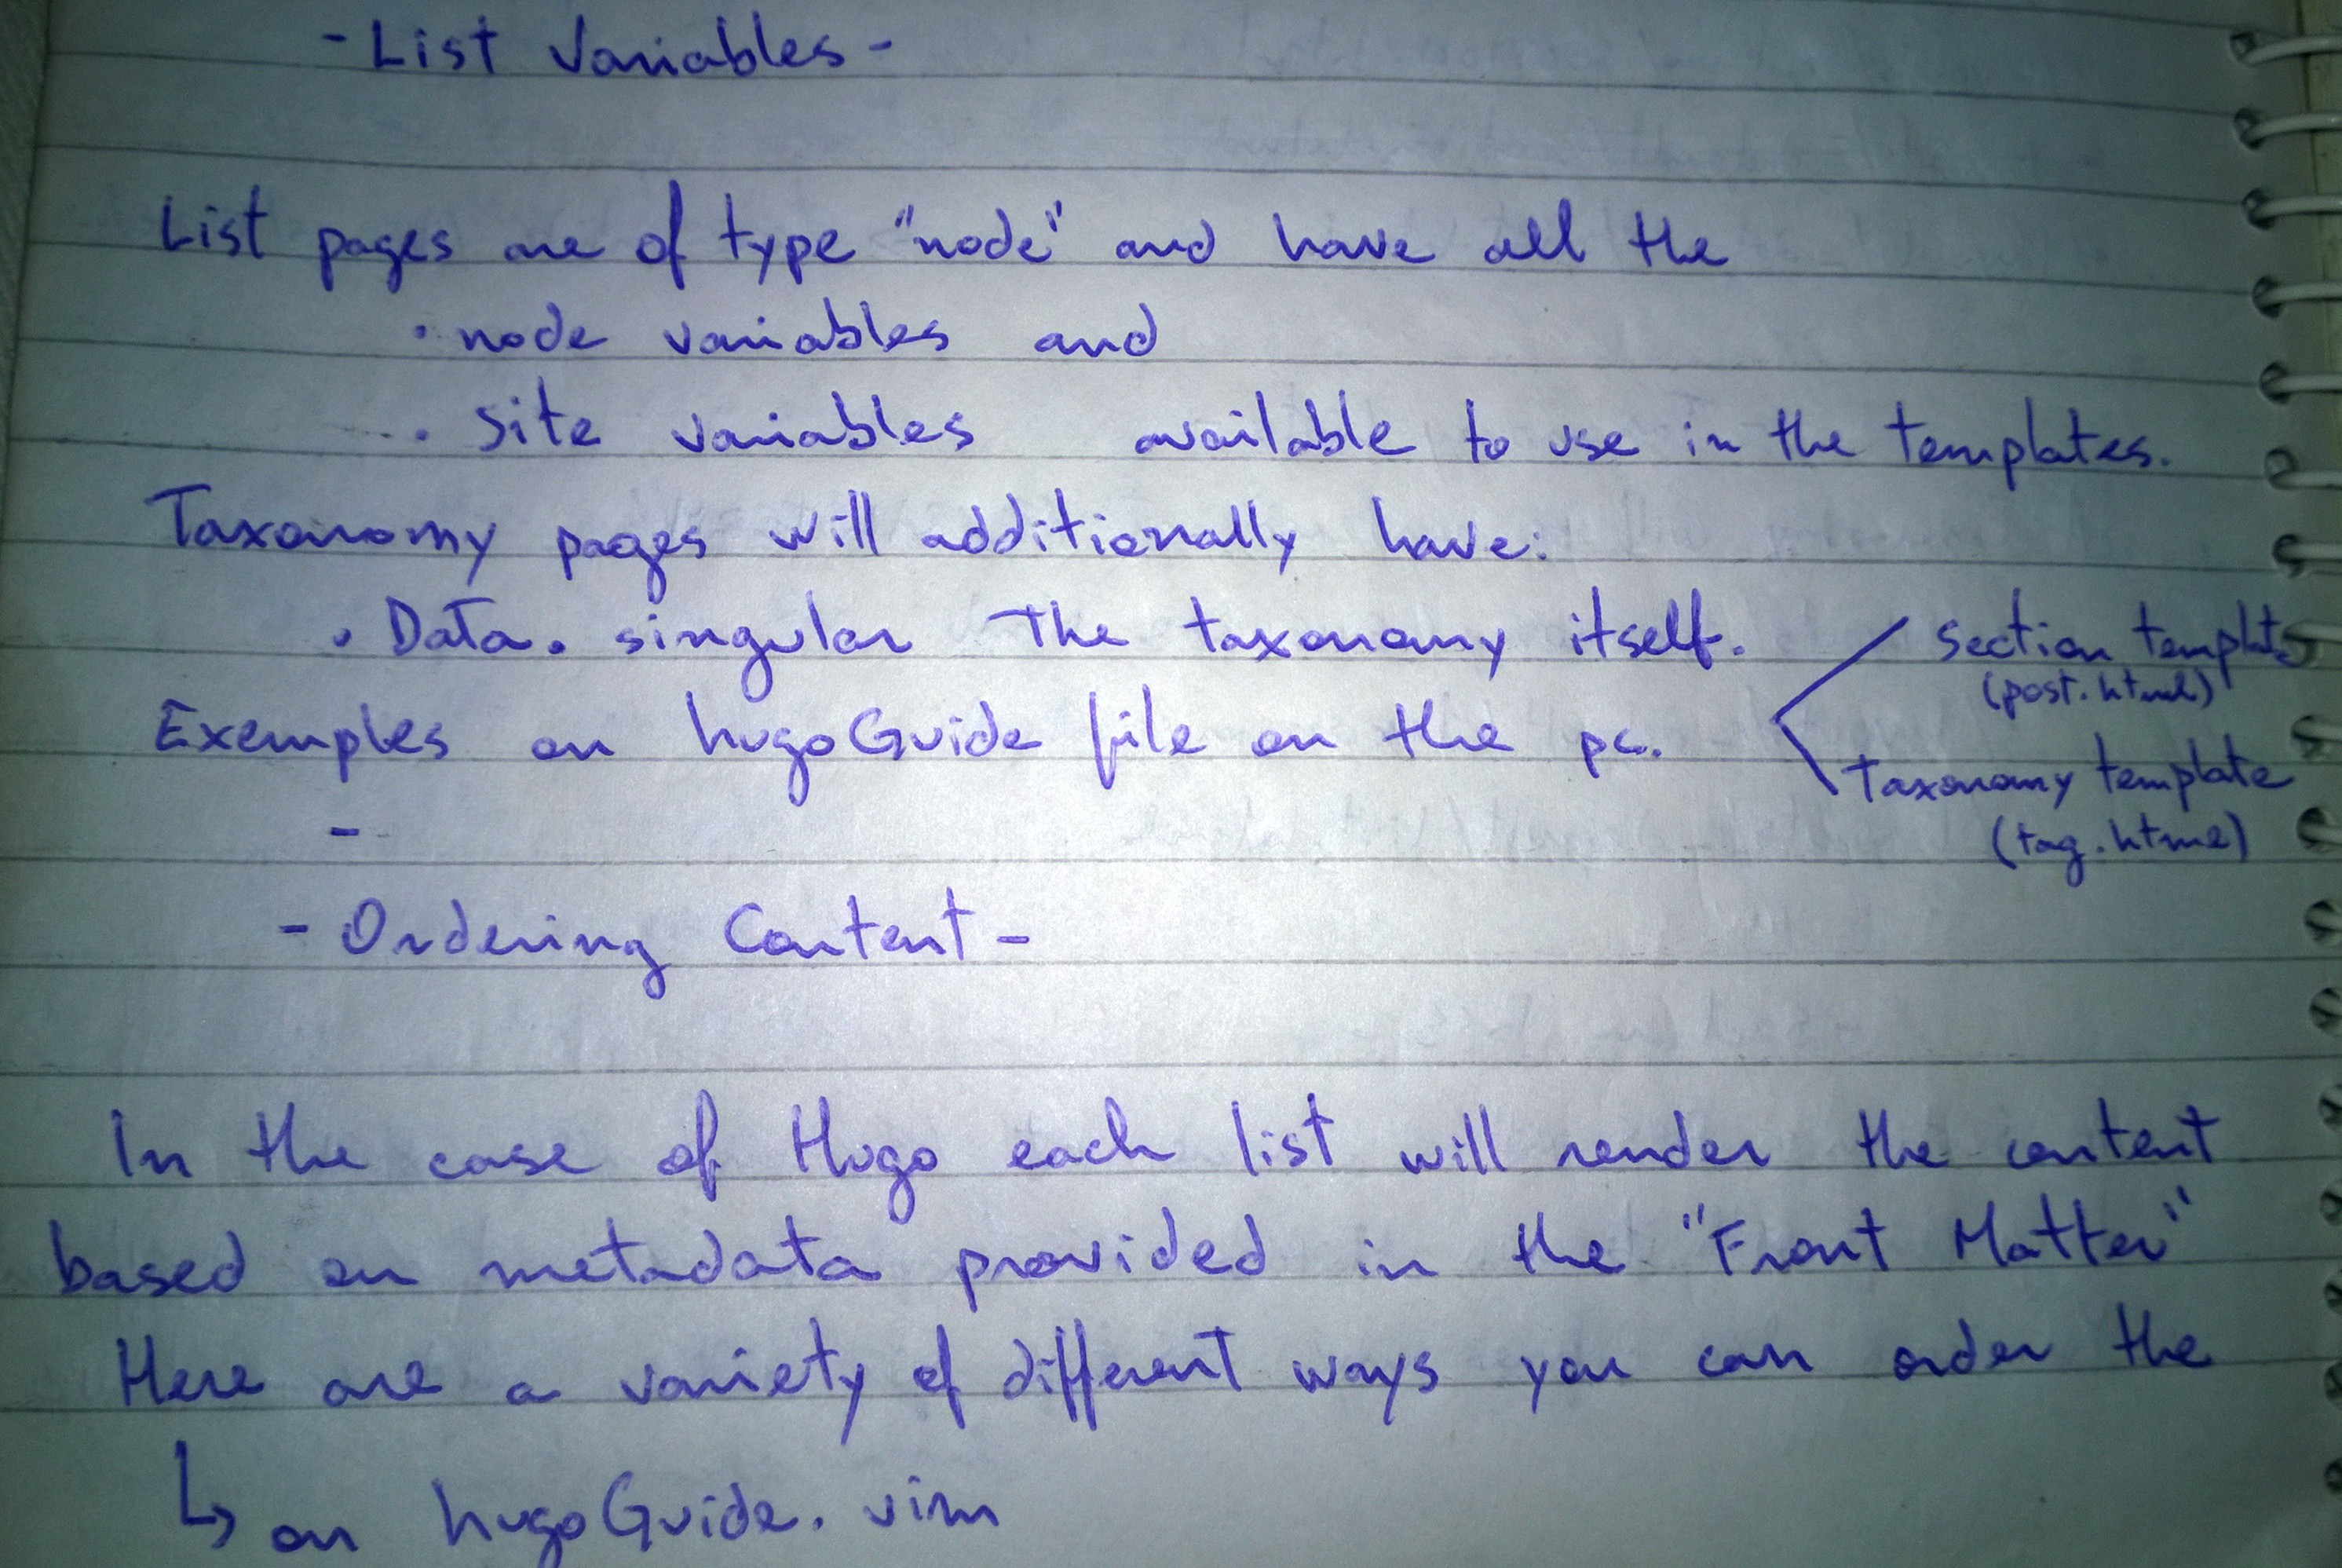 - List Variables -
List pages are of type "node" and have all the
· node variables and
· Site variables available to use in the templates.
Taxonomy pages will additionally have:
· Data. singular The taxonomy itself.
Exemples on hugoGuide file on the pc.
section template
(post.html)
Taxonomy template
(tag.html)
-
- Ordering Content -
In the case of Hugo each list will render the content
based on metadata provided in the "Front Matter"
Here are a variety of different ways you can order the
↳ on hugoGuide.vim